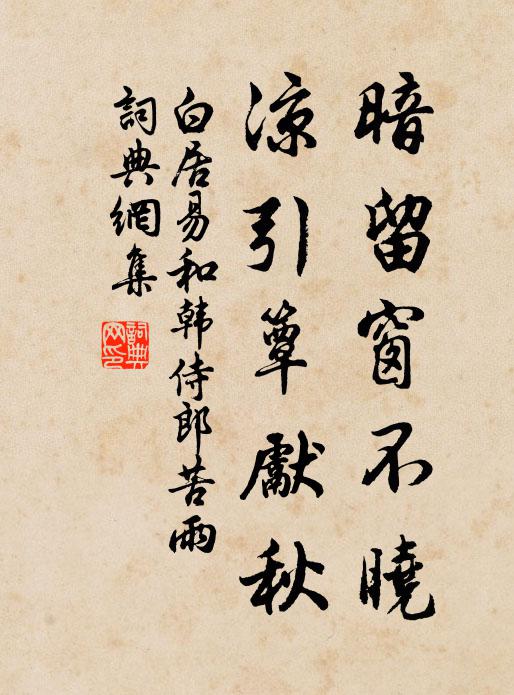 暗留窗不曉
涼引簟獻秋
白居易和韓侍郎苦雨
詞典網集
詞典
网印